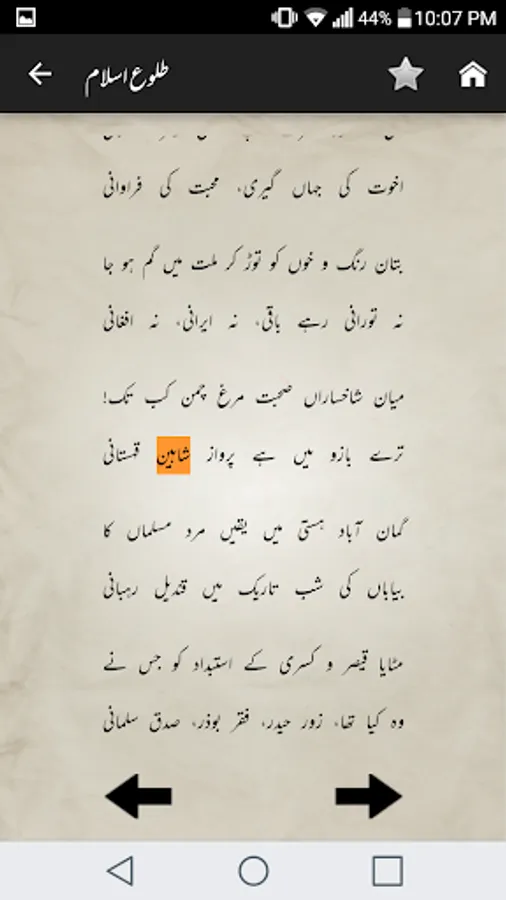 44% 10:07 PM
طلوع اسلام
اخوت کی جہاں گیری، محبت کی فراوانی
بتان رنگ و خوں کو توڑ کر ملت میں گم ہو جا
نہ تورانی رہے باقی، نہ ایرانی، نہ افغانی
میان شاخساراں صحبت مرغ چمن کب تک!
ترے بازو میں ہے پرواز شاہین قہستانی
گمان آباد ہستی میں یقیں مرد مسلماں کا
بیاباں کی شب تاریک میں قندیل رہبانی
مٹایا قیصر و کسری کے استبداد کو جس نے
وہ کیا تھا، زور حیدر، فقر بوذر، صدق سلمانی